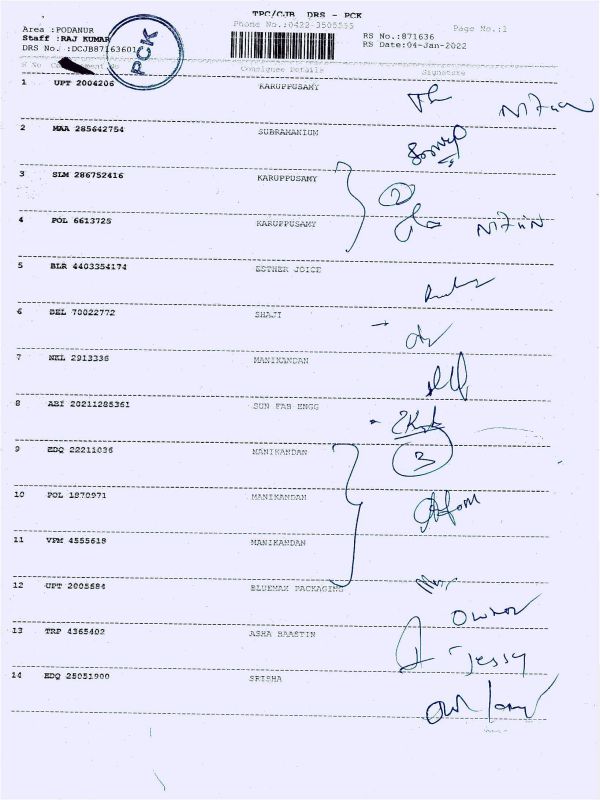 TPC/CJB DRS - PCK
Area :PODANUR Phone No.:0422-3505555 Page No.:1
Staff :RAJ KUMAR RS No.:871636
DRS No. :DCJB87163601 RS Date:04-Jan-2022
PCK
S No Consignee Details Signature
1 UPT 2004206 KARUPPUSAMY
2 MAA 285642754 SUBRAMANIUM
3 SLM 286752416 KARUPPUSAMY
4 POL 6613725 KARUPPUSAMY
5 BLR 4403354174 ESTHER JOICE
6 DEL 70022772 SHAJI
7 NKL 2913336 MANIKANDAN
8 ABI 20211285361 SUN FAB ENGG
9 EDQ 22211036 MANIKANDAN 3
10 POL 1870971 MANIKANDAN
11 VPM 4555618 MANIKANDAN
12 UPT 2005684 BLUEMAX PACKAGING
Owner
13 TRP 4365402 ASHA BAASTIN
Jessy
14 EDQ 25051900 SRISHA